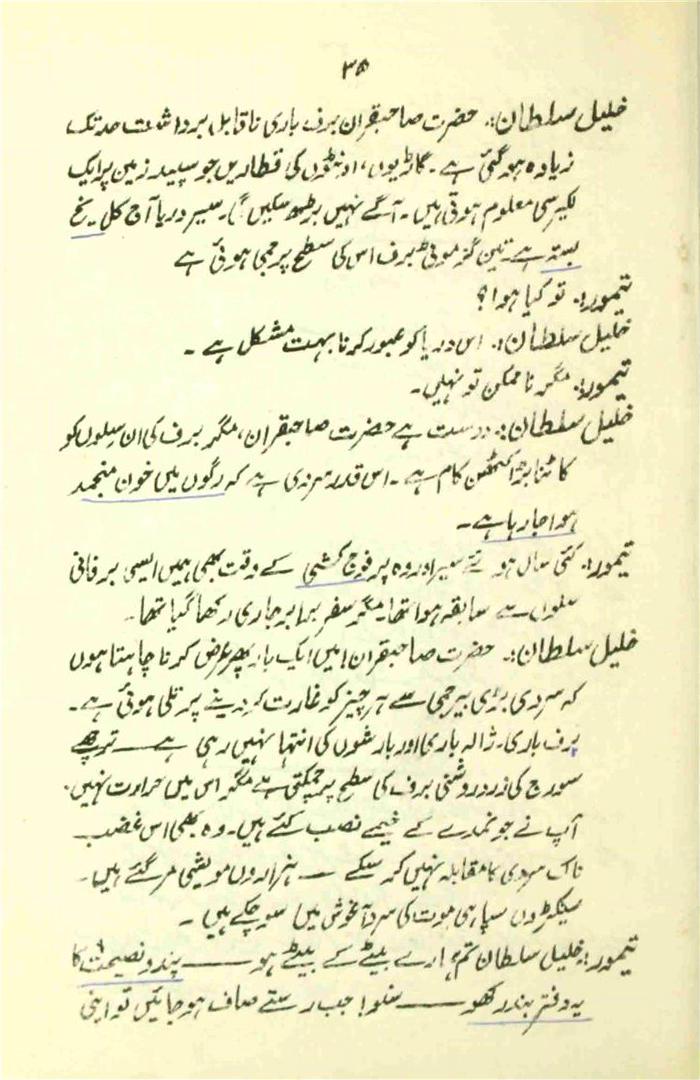 ۳۵
خلیل سلطان:۔ حضرت صاحبقران برف باری ناقابل برداشت حد تک
زیادہ ہو گئی ہے۔ گاڑیوں، اونٹوں کی قطاریں جو سپید زمین پر ایک
لکیر سی معلوم ہوتی ہیں۔ آگے نہیں بڑھ سکیں گی۔ سیر دریا آج کل یخ
بستہ ہے۔ تین گز موٹی برف اس کی سطح پر جمی ہوئی ہے
تیمور:۔ تو کیا ہوا؟
خلیل سلطان:۔ اس دریا کو عبور کرنا بہت مشکل ہے۔
تیمور:۔ مگر ناممکن تو نہیں۔
خلیل سلطان:۔ درست ہے حضرت صاحبقران، مگر برف کی ان سلوں کو
کاٹنا بڑا کٹھن کام ہے۔ اس قدر سردی ہے کہ رگوں میں خون منجمد
ہوا جا رہا ہے۔
تیمور:۔ کئی سال ہوئے سیر اور وہ پر فوج کشی کے وقت بھی ہمیں ایسی برفانی
سلوں سے سابقہ ہوا تھا۔ مگر سفر برابر جاری رکھا گیا تھا۔
خلیل سلطان:۔ حضرت صاحبقران! میں ایک بار پھر عرض کرنا چاہتا ہوں
کہ سردی بڑی بیرحمی سے ہر چیز کو غارت کر دینے پر تلی ہوئی ہے۔
برف باری۔ ژالہ باری اور بارشوں کی انتہا نہیں رہی ہے — ترچھے
سورج کی زرد روشنی برف کی سطح پر چمکتی ہے مگر اس میں حرارت نہیں۔
آپ نے جو نمدے کے خیمے نصب کئے ہیں۔ وہ بھی اس غضب
ناک سردی کا مقابلہ نہیں کر سکے — ہزاروں مویشی مر گئے ہیں۔
سینکڑوں سپاہی موت کی سرد آغوش میں سو چکے ہیں۔
تیمور:۔ خلیل سلطان تم ہمارے بیٹے کے بیٹے ہو — پند و نصیحت کا
یہ دفتر بند رکھو — سنو! جب رستے صاف ہو جائیں تو اپنی